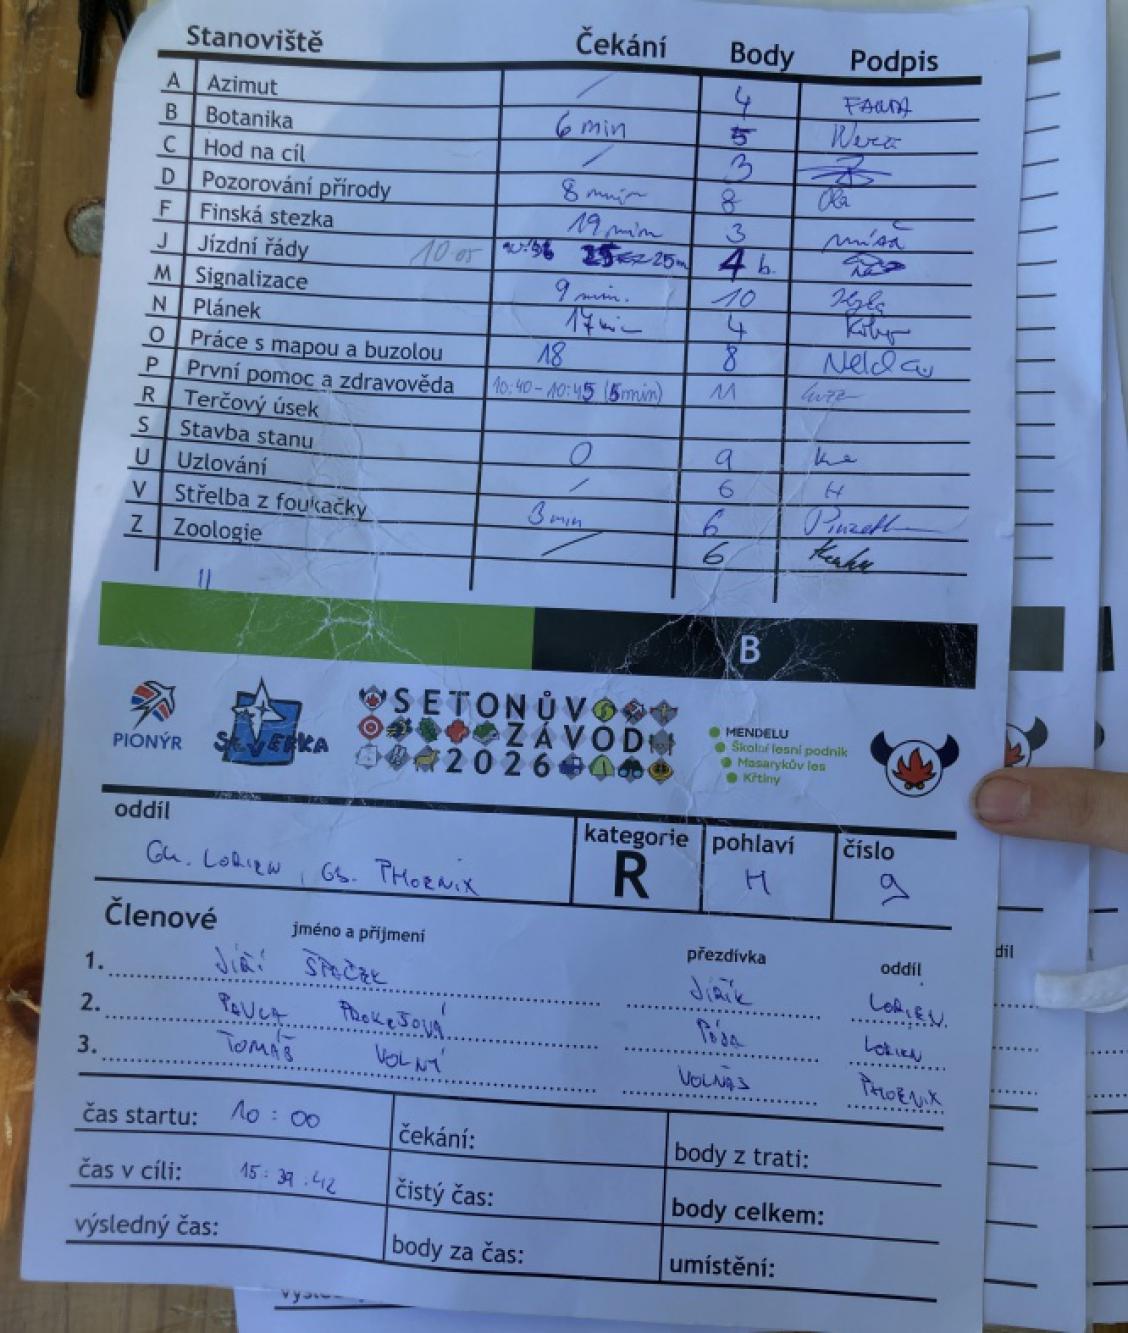 Stanoviště Čekání Body Podpis
A Azimut / 4 FANDA
B Botanika 6 min 5
C Hod na cíl / 3
D Pozorování přírody 8 min 8 Ola
F Finská stezka 19 min 3
J Jízdní řády 10:05 25m 4 b.
M Signalizace 9 min. 10
N Plánek 17 min 4
O Práce s mapou a buzolou 18 8
P První pomoc a zdravověda 10:40 - 10:45 (5min) 11
R Terčový úsek
S Stavba stanu 0 9
U Uzlování / 6 H
V Střelba z foukačky 3 min 6
Z Zoologie / 6
11
B
PIONÝR
SEVERKA
SETONŮV
ZÁVOD
2026
MENDELU
Školní lesní podnik
Masarykův les
Křtiny
oddíl kategorie pohlaví číslo
LORIEN, PHOENIX R H 9
Členové jméno a příjmení přezdívka oddíl
1. JIŘÍ JIŘÍK LORIEN
2. PAVLA PROKEŠOVÁ LORIEN
3. TOMÁŠ VOLNÝ VOLŇÁS PHOENIX
čas startu: 10:00 čekání: body z trati:
čas v cíli: 15:39:42 čistý čas: body celkem:
výsledný čas: body za čas: umístění:
díl